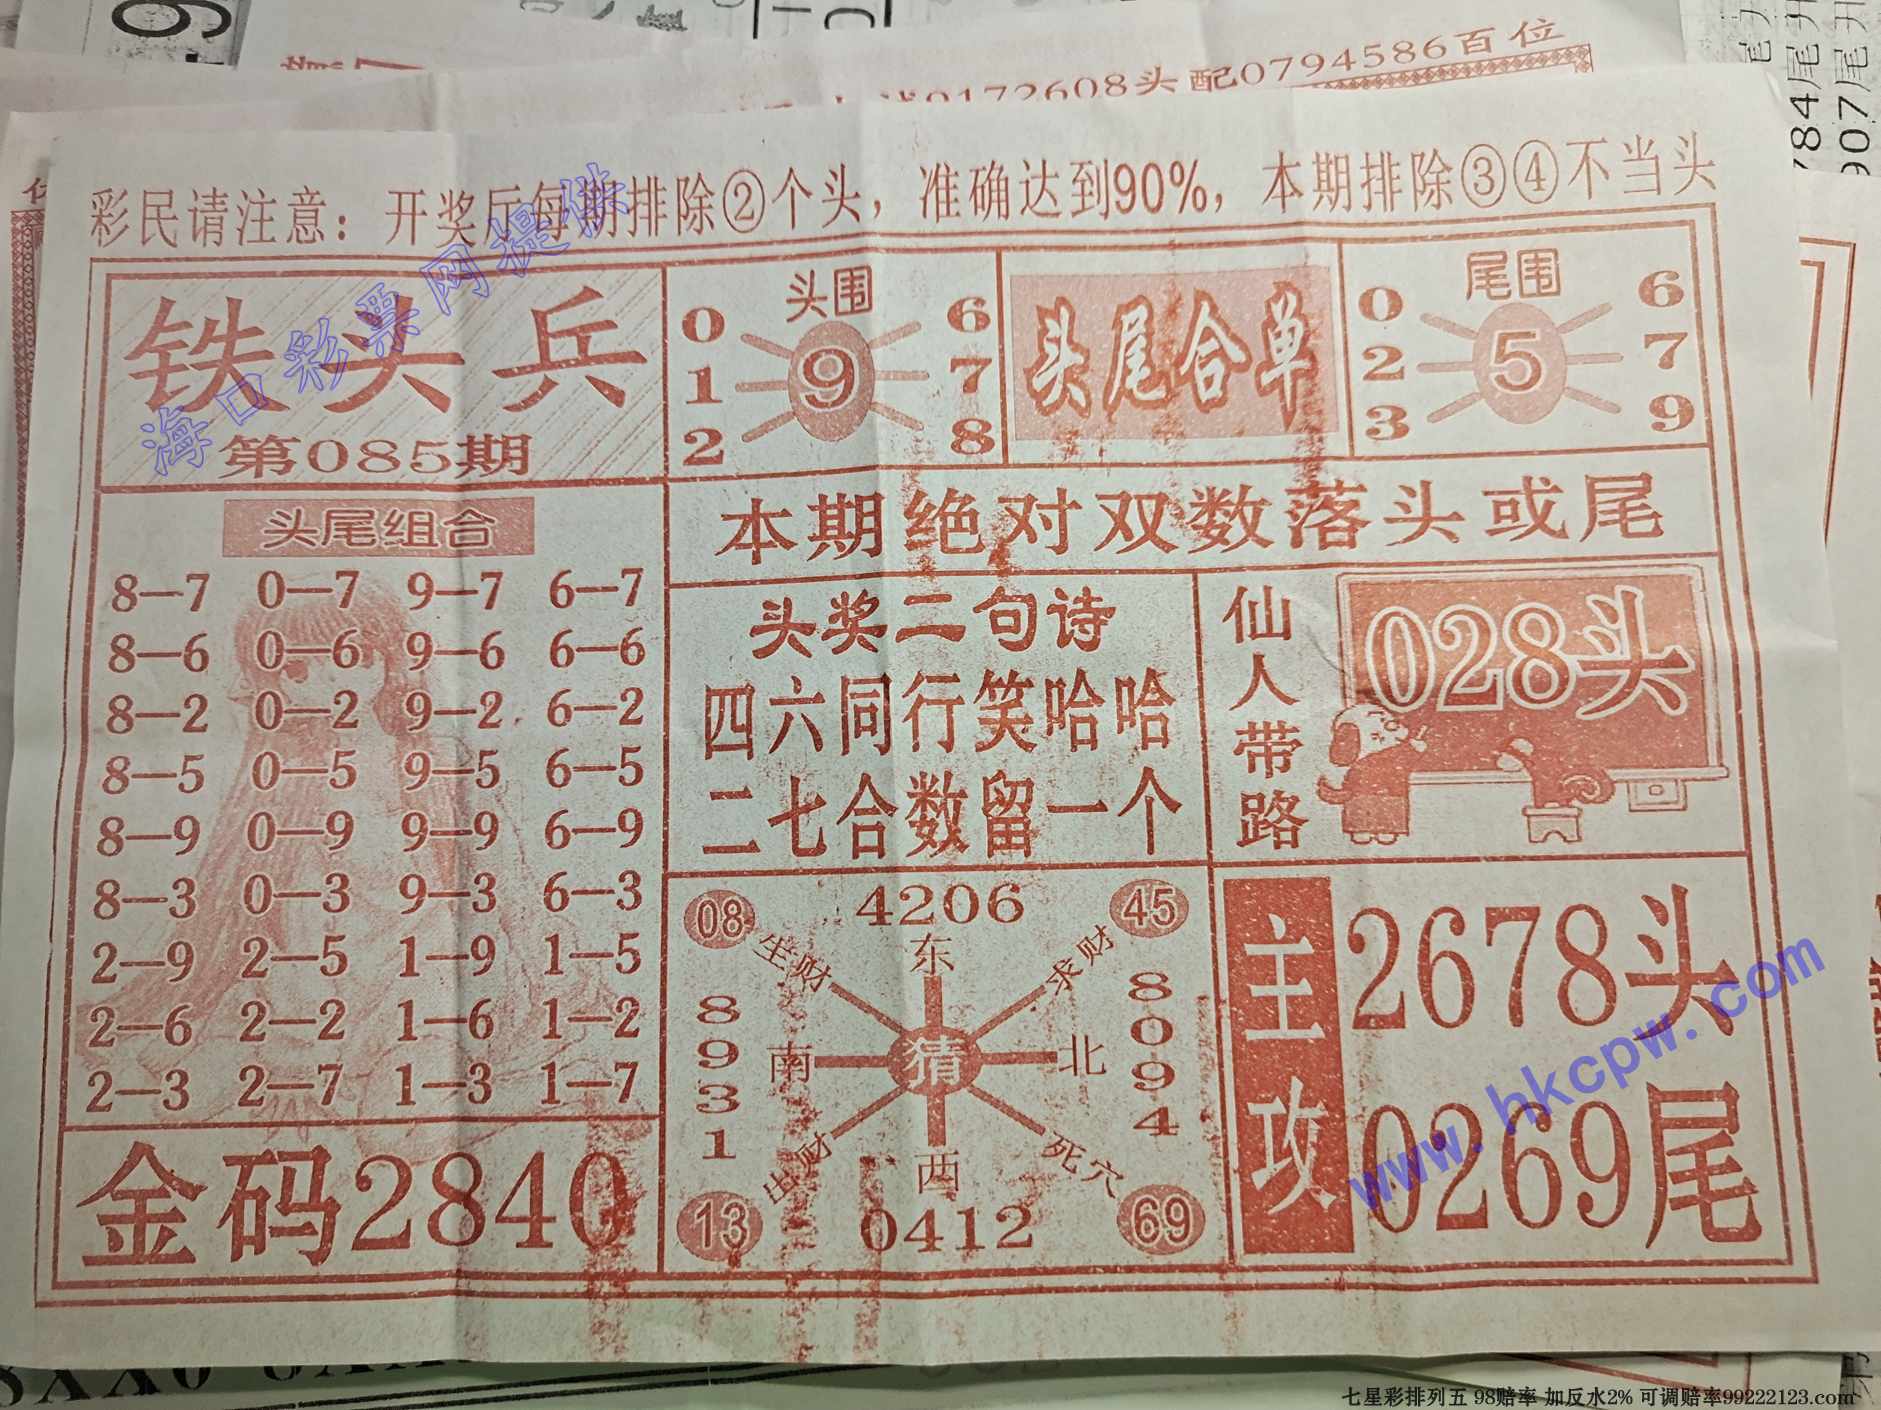 0172608头配0794586百位
784尾
907尾
彩民请注意：开奖厅每期排除②个头，准确达到90%，本期排除③④不当头
海口彩票网提供
铁头兵
第085期
头围
0 6
1 9 7
2 8
头尾合单
尾围
0 6
2 5 7
3 9
本期绝对双数落头或尾
头尾组合
8—7 0—7 9—7 6—7
8—6 0—6 9—6 6—6
8—2 0—2 9—2 6—2
8—5 0—5 9—5 6—5
8—9 0—9 9—9 6—9
8—3 0—3 9—3 6—3
2—9 2—5 1—9 1—5
2—6 2—2 1—6 1—2
2—3 2—7 1—3 1—7
金码2840
头奖二句诗
四六同行笑哈哈
二七合数留一个
仙人带路
028头
08 4206 45
生财 东 求财
8931 南 猜 北 8094
出财 西 死穴
13 0412 69
主攻
2678头
0269尾
www.hkcpw.com
七星彩排列五 98赔率 加反水2% 可调赔率99222123.com